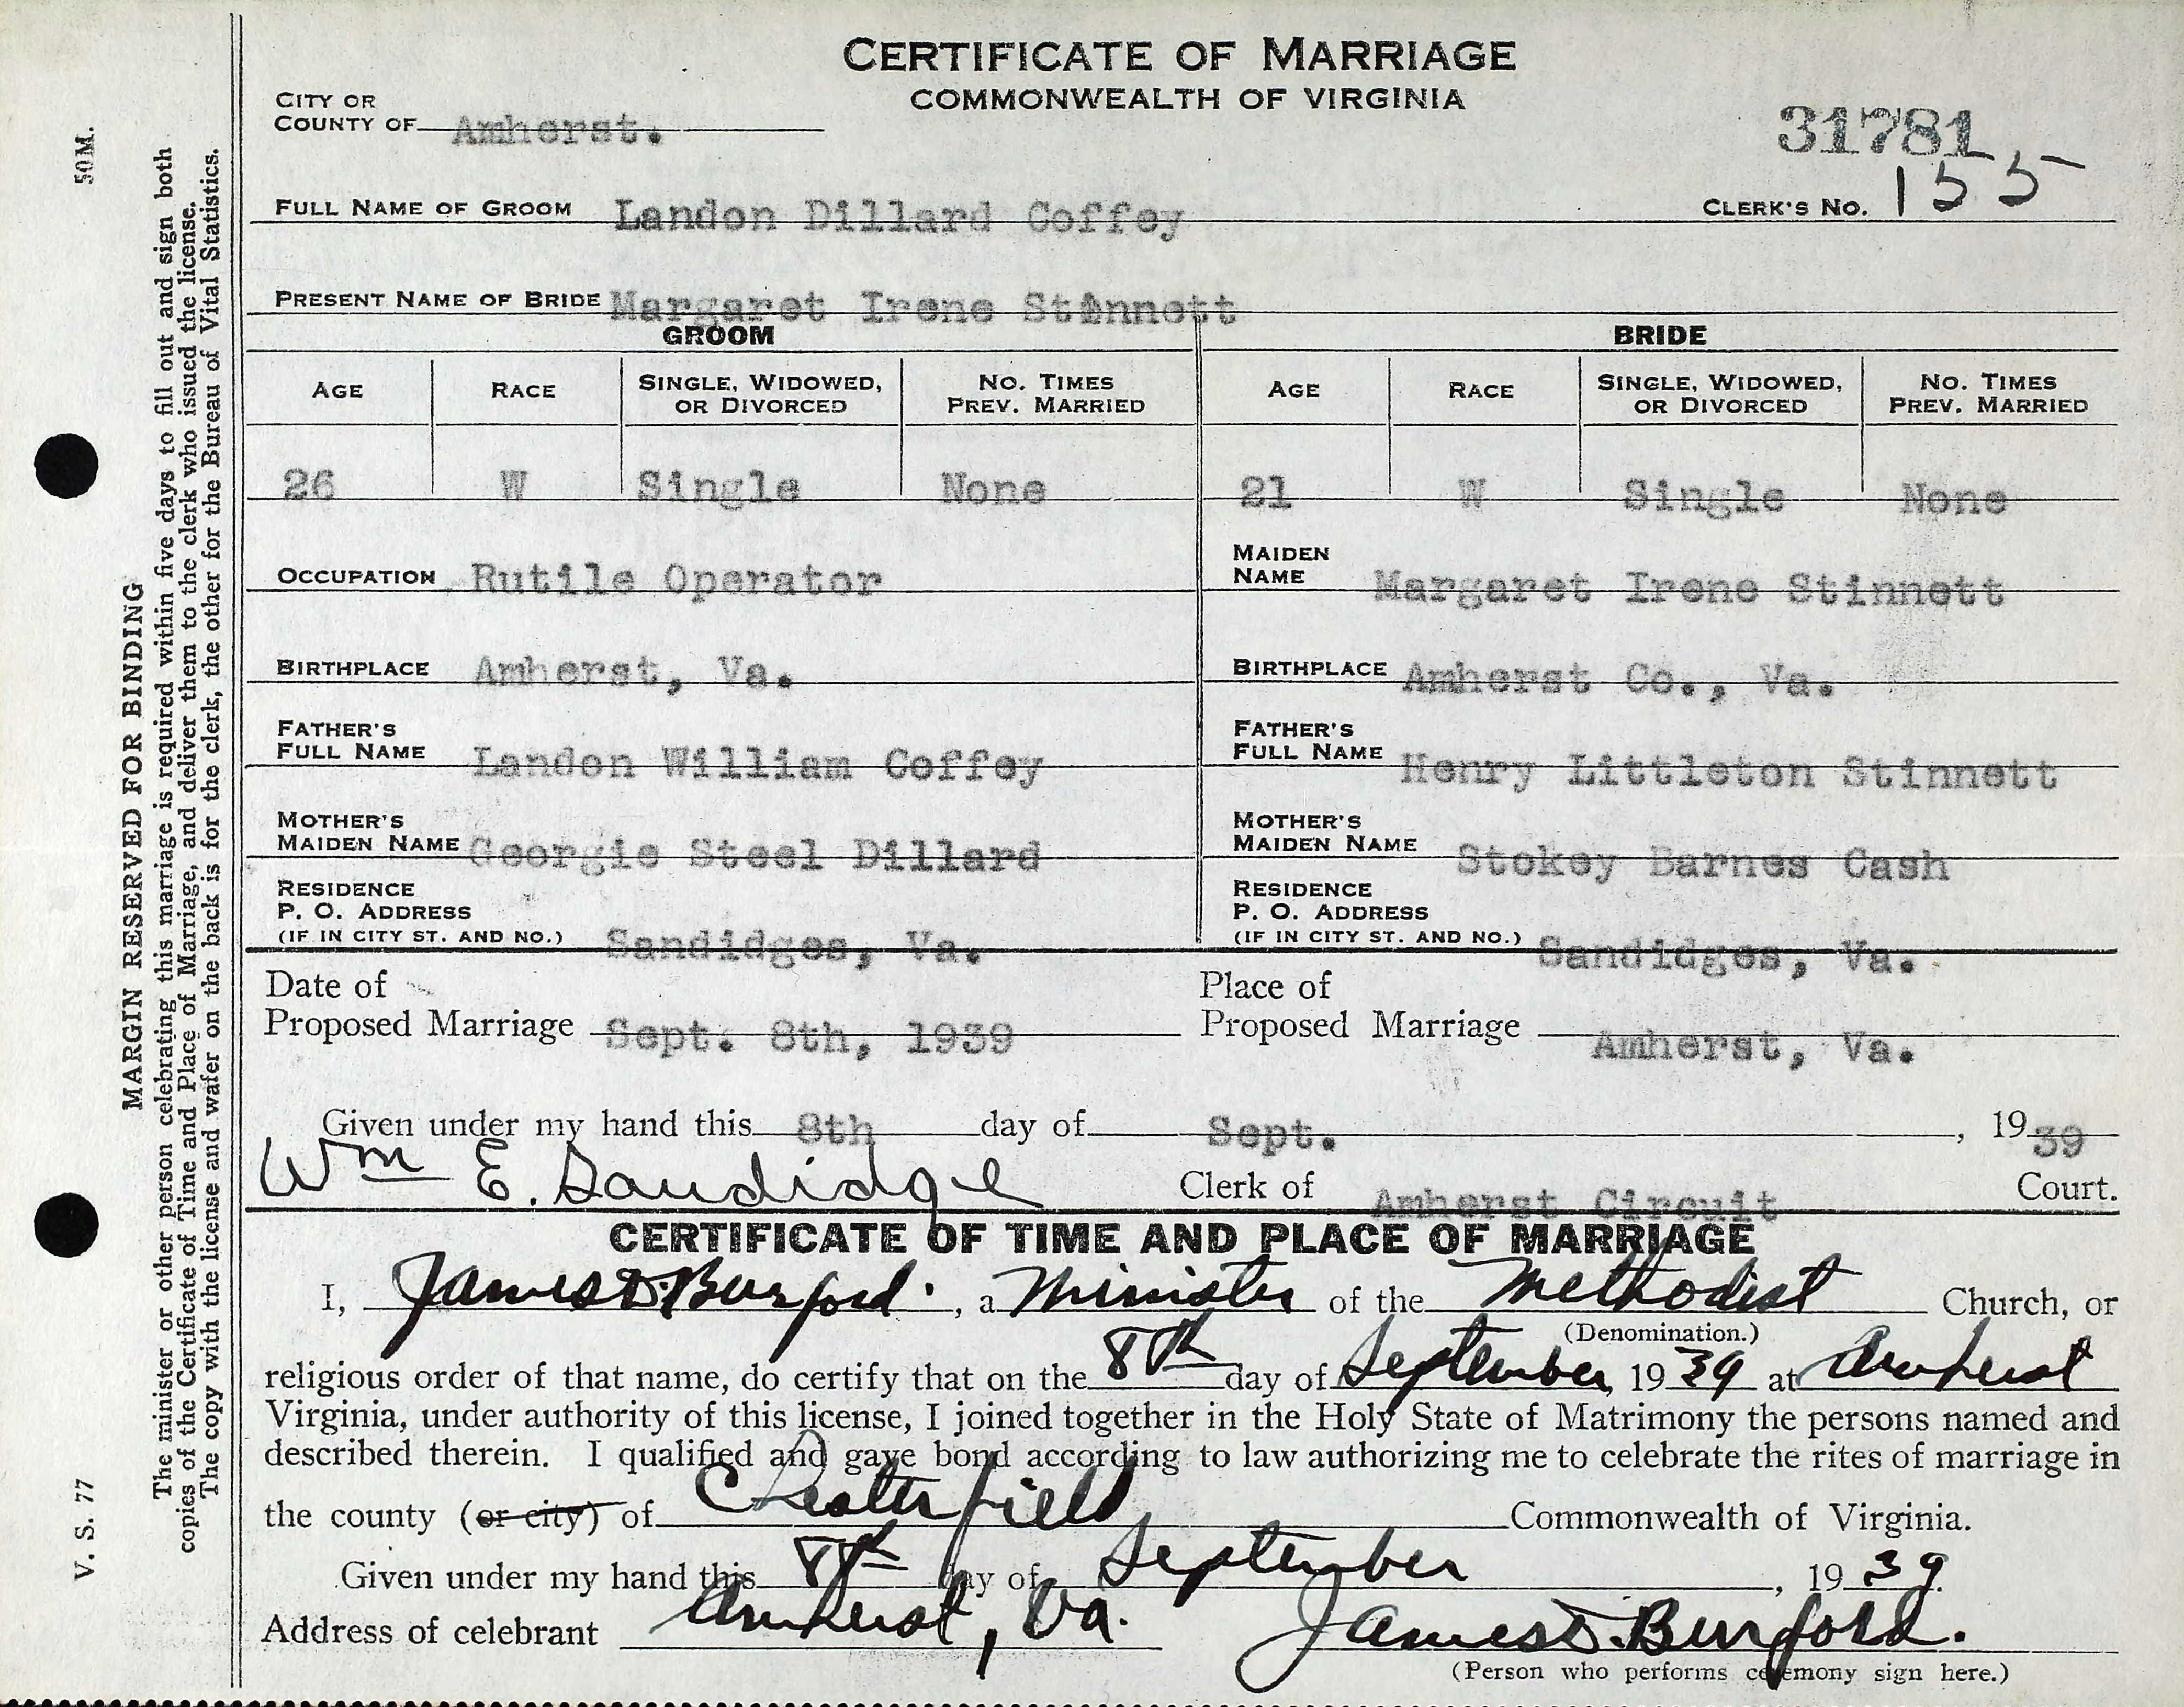 CERTIFICATE OF MARRIAGE
COMMONWEALTH OF VIRGINIA
CITY OR
COUNTY OF Amherst.
31781
FULL NAME OF GROOM Landon Dillard Coffey CLERK'S NO. 155
PRESENT NAME OF BRIDE Margaret Irene Stinnett
GROOM BRIDE
AGE RACE SINGLE, WIDOWED, OR DIVORCED NO. TIMES PREV. MARRIED AGE RACE SINGLE, WIDOWED, OR DIVORCED NO. TIMES PREV. MARRIED
26 W Single None 21 W Single None
OCCUPATION Rutile Operator MAIDEN NAME Margaret Irene Stinnett
BIRTHPLACE Amherst, Va. BIRTHPLACE Amherst Co., Va.
FATHER'S FULL NAME Landon William Coffey FATHER'S FULL NAME Henry Littleton Stinnett
MOTHER'S MAIDEN NAME Georgie Steel Dillard MOTHER'S MAIDEN NAME Stokey Barnes Cash
RESIDENCE
P. O. ADDRESS
(IF IN CITY ST. AND NO.) Sandidges, Va.
RESIDENCE
P. O. ADDRESS
(IF IN CITY ST. AND NO.) Sandidges, Va.
Date of
Proposed Marriage Sept. 8th, 1939
Place of
Proposed Marriage Amherst, Va.
Given under my hand this 8th day of Sept., 1939
Wm E. Sandidge Clerk of Amherst Circuit Court.
CERTIFICATE OF TIME AND PLACE OF MARRIAGE
I, James D. Burford, a Minister of the Methodist Church, or
(Denomination.)
religious order of that name, do certify that on the 8th day of September, 1939 at Amherst
Virginia, under authority of this license, I joined together in the Holy State of Matrimony the persons named and
described therein. I qualified and gave bond according to law authorizing me to celebrate the rites of marriage in
the county (or city) of Chesterfield Commonwealth of Virginia.
Given under my hand this 8th day of September, 1939.
Address of celebrant Amherst, Va. James D. Burford.
(Person who performs ceremony sign here.)
V. S. 77 50M.
MARGIN RESERVED FOR BINDING
The minister or other person celebrating this marriage is required within five days to fill out and sign both
copies of the Certificate of Time and Place of Marriage, and deliver them to the clerk who issued the license.
The copy with the license and wafer on the back is for the clerk, the other for the Bureau of Vital Statistics.